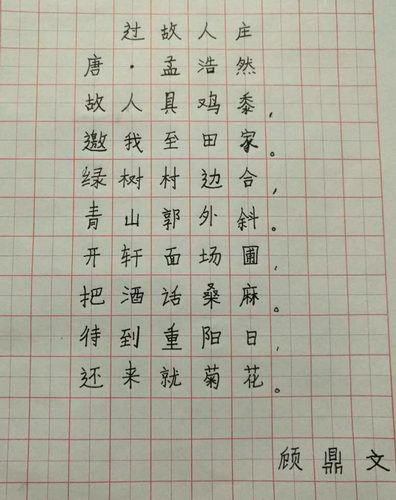 过故人庄
唐·孟浩然
故人具鸡黍，
邀我至田家。
绿树村边合，
青山郭外斜。
开轩面场圃，
把酒话桑麻。
待到重阳日，
还来就菊花。
顾鼎文